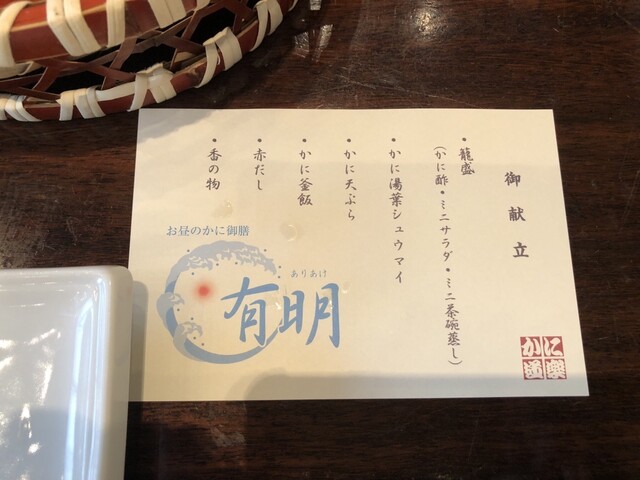 御献立
・籠盛
(かに酢・ミニサラダ・ミニ茶碗蒸し)
・かに湯葉シュウマイ
・かに天ぷら
・かに釜飯
・赤だし
・香の物
お昼のかに御膳
ありあけ
有明
かに道楽